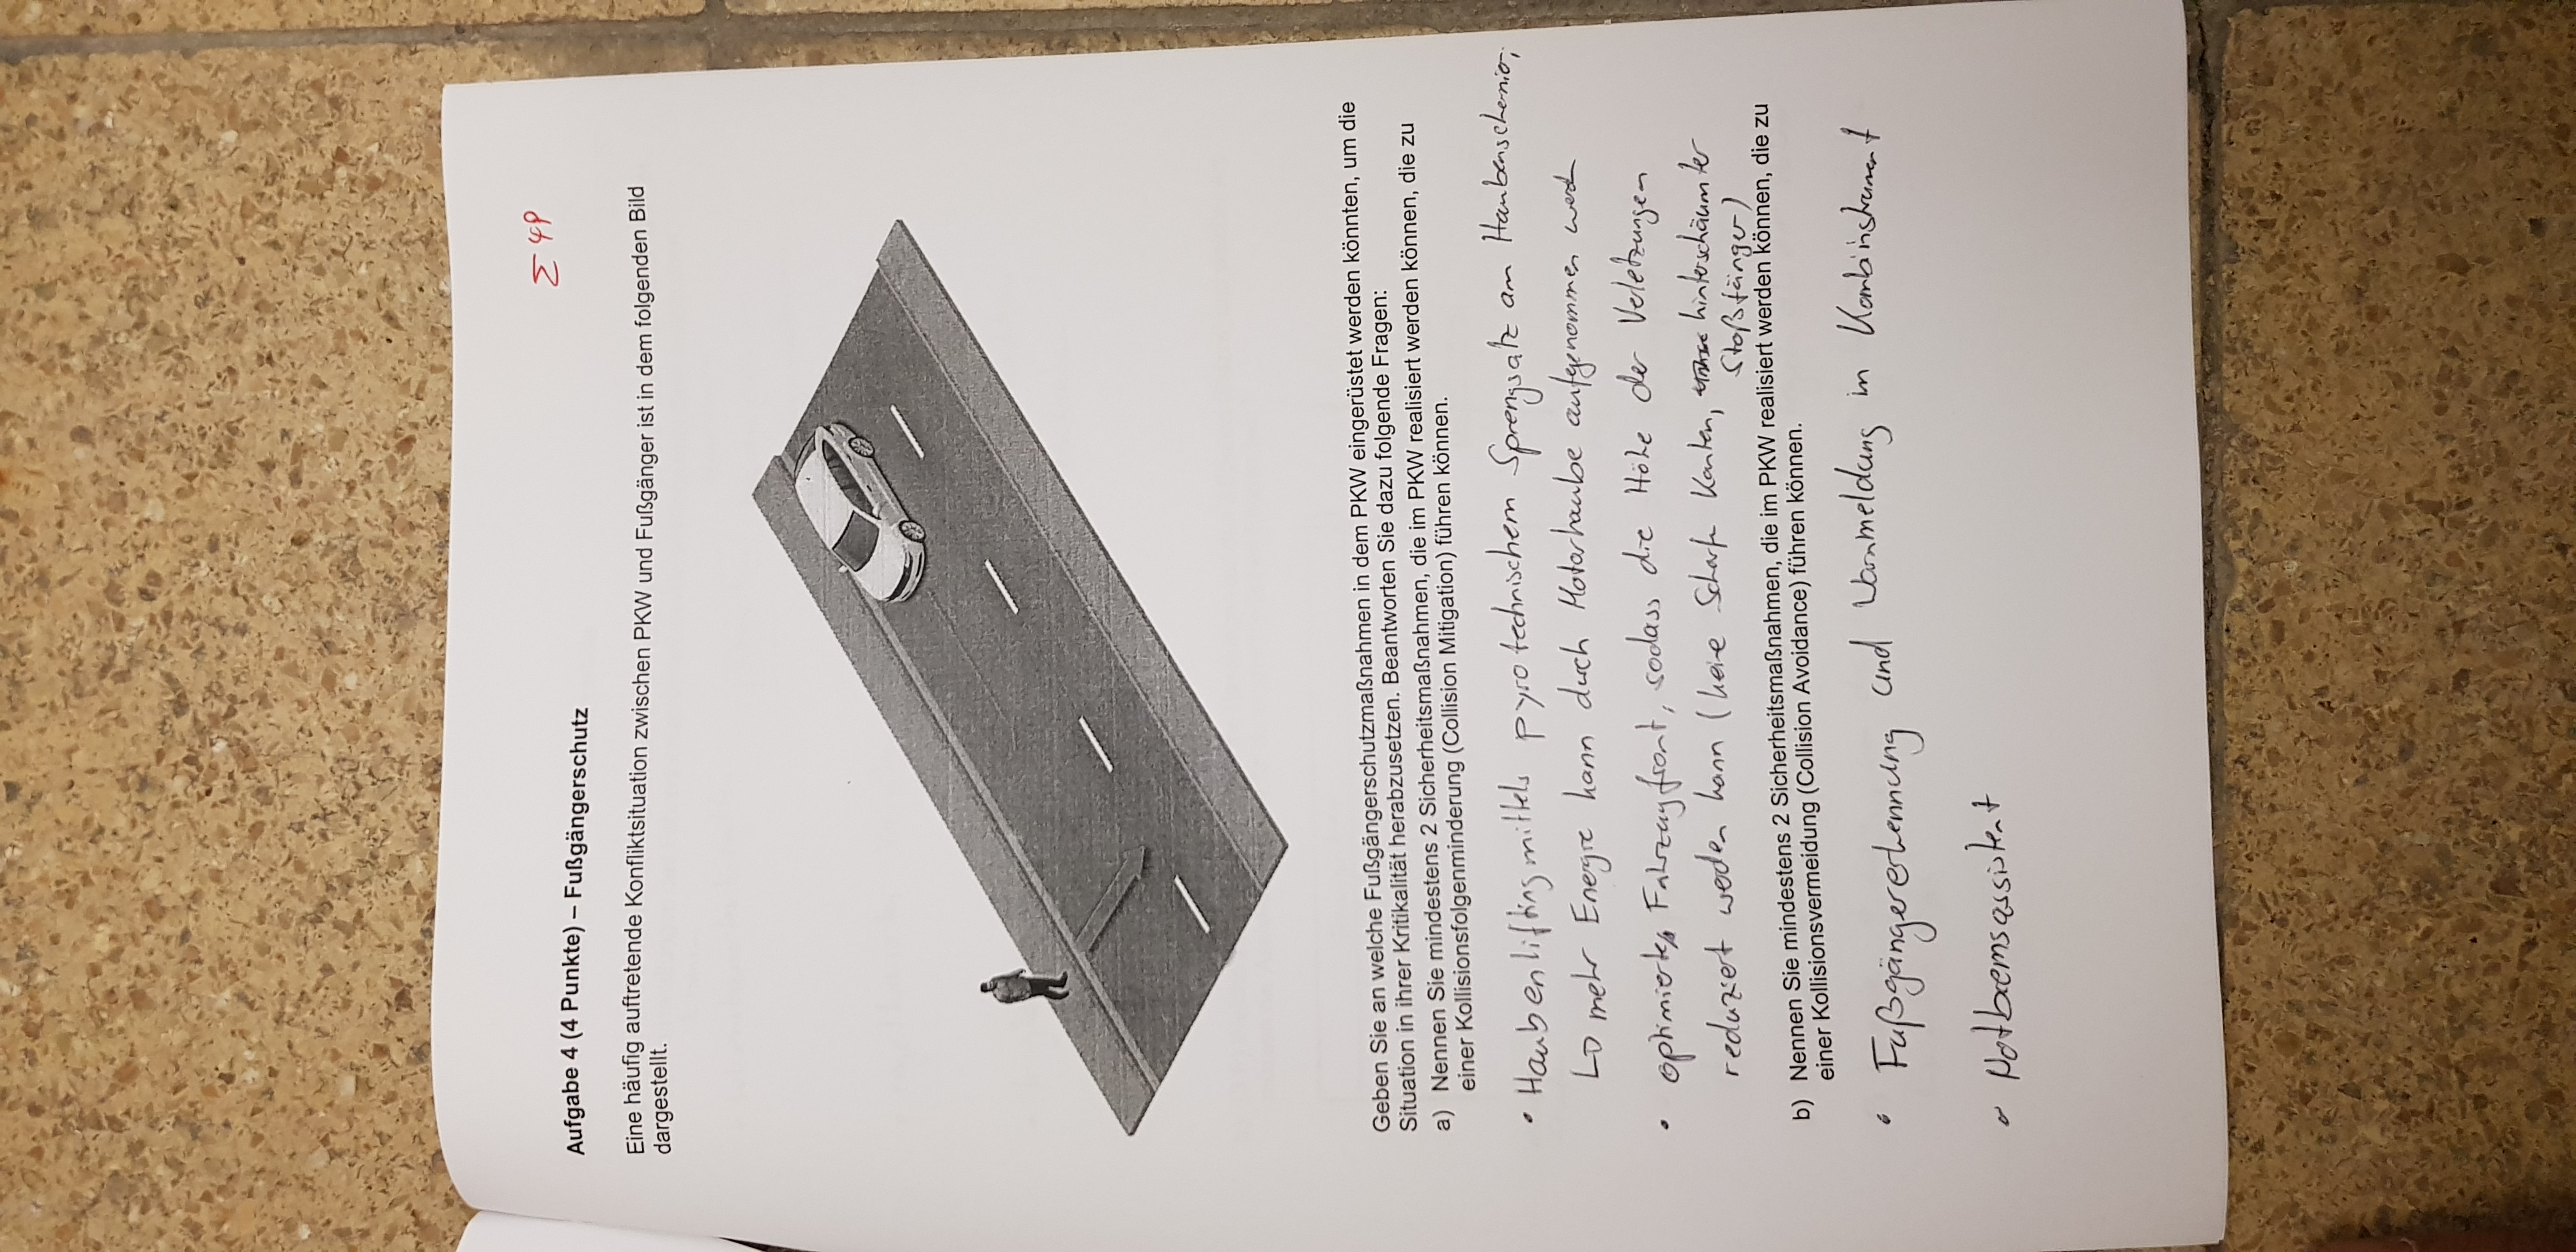 Σ 4P
Aufgabe 4 (4 Punkte) – Fußgängerschutz
Eine häufig auftretende Konfliktsituation zwischen PKW und Fußgänger ist in dem folgenden Bild
dargestellt.
Geben Sie an welche Fußgängerschutzmaßnahmen in dem PKW eingerüstet werden könnten, um die
Situation in ihrer Kritikalität herabzusetzen. Beantworten Sie dazu folgende Fragen:
a) Nennen Sie mindestens 2 Sicherheitsmaßnahmen, die im PKW realisiert werden können, die zu
einer Kollisionsfolgenminderung (Collision Mitigation) führen können.
• Haubenlifting mittels pyrotechnischem Sprengsatz am Haubenscharnier,
↳ mehr Energie kann durch Motorhaube aufgenommen werden
• optimierte Fahrzeugfront, sodass die Höhe der Verletzungen
reduziert werden kann (keine Scharfe Kanten, hinterschäumter
Stoßfänger)
b) Nennen Sie mindestens 2 Sicherheitsmaßnahmen, die im PKW realisiert werden können, die zu
einer Kollisionsvermeidung (Collision Avoidance) führen können.
• Fußgängererkennung und Warnmeldung im Kombiinstrument
• Notbremsassistent